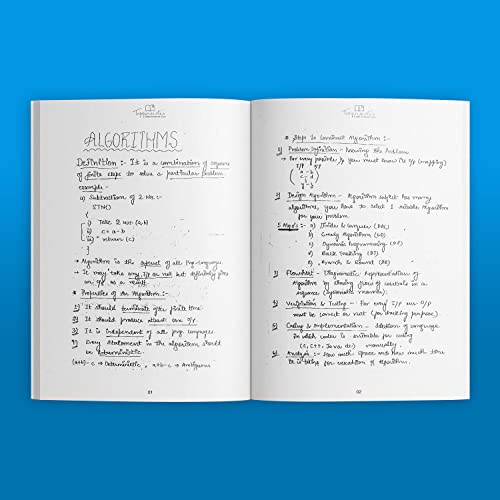 ALGORITHMS
Definition :- It is a combination of sequence
of finite steps to solve a particular problem
example -
a) Subtraction of 2 No. :-
STN()
{
i) Take 2 nos (a, b)
ii) c = a - b
iii) return (c)
}
→ Algorithm is the of all Prog-languages.
→ It may take any I/P or not but definitely gives
an O/P as a result.
Properties of An Algorithm :-
1) It should terminate after finite time
2) It should produce atleast one O/P
3) It is independent of all prog languages
4) Every statement in the algorithm should
be Deterministic.
(a+b) - c → Deterministic, a+b - c → Ambiguous
01
Steps to Construct Algorithm :-
1) Problem Definition - Knowing the Problem
→ For every possible I/P you must know its O/P (mapping)
I/P O/P
2) Design Algorithm - Algorithm subject has many
algorithms, you have to select 1 suitable Algorithm
for your problem
5 Algo's :- a) Divide & Conquer (DAC)
b) Greedy Algorithm (GA)
c) Dynamic Programming (DP)
d) Back Tracking (BT)
e) Branch & Bound (BB)
3) Flowchart - Diagramatic Representations of
Algorithm by showing flow of controls in a
sequence (systematic manner).
4) Verification & Testing - For every I/P our O/P
must be correct or not (for checking purpose).
5) Coding & Implementation - Selection of Language
in which codes is suitable for coding
(C, C++, Java etc) manually.
6) Analysis :- How much space and how much time
it is taking for execution of algorithm.
02